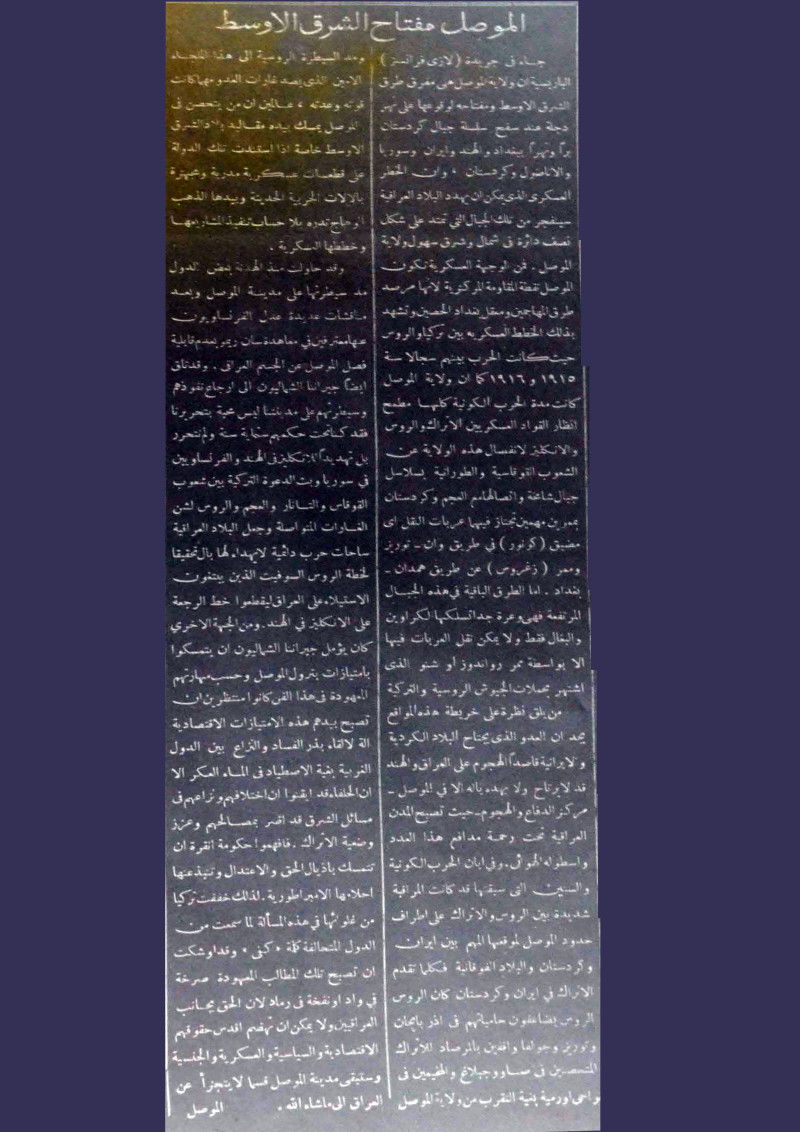 الموصل مفتاح الشرق الاوسط
جاء في جريدة (لازى فرانسز)
الباريسية ان ولاية الموصل هى مفرق طرق
الشرق الاوسط ومفتاحه لوقوعها على نهر
دجلة عند سفح سلسلة جبال كردستان
براً ونهراً ببغداد والهند وايران وسوريا
والاناضول وكردستان ، وان الخطر
العسكرى الذى يمكن ان يهدد البلاد العراقية
سينفجر من تلك الجبال التي تمتد على شكل
نصف دائرة في شمال وشرق سهول ولاية
الموصل . فمن الوجهة العسكرية تكون
الموصل نقطة المقاومة المركزية لانها مرصد
طرق المهاجمين ومعقل بغداد الحصين وتشهد
بذلك الخطط العسكريه بين تركيا والروس
حيث كانت الحرب بينهم سجالا سنة
١٩١٥ و ١٩١٦ كما ان ولاية الموصل
كانت مدة الحرب الكونية كلها مطمح
انظار القواد العسكريين الاتراك والروس
والانكليز لانفصال هذه الولاية عن
الشعوب القوقاسية والطورانية بسلاسل
جبال شامخة واتصالها مع العجم وكردستان
بممرين مهمين تجتاز فيهما عربات النقل اى
مضيق (كونور) في طريق وان ـ توريز
وممر (زغروس) عن طريق همدان ـ
بغداد . اما الطرق الباقية في هذه الجبال
المرتفعة فهى وعرة جداً تسلكها الكراوين
والبغال فقط ولا يمكن نقل العربات فيها
الا بواسطة ممر رواندوز أو شنو الذى
اشتهر بحملات الجيوش الروسية والتركية
من يلق نظرة على خريطة هذه المواقع
يجد ان العدو الذى يجتاح البلاد الكردية
والايرانية قاصداً الهجوم على العراق والهند
قد لا يرتاح ولا يهدء باله الا في الموصل ـ
مركز الدفاع والهجوم ـ حيث تصبح المدن
العراقية تحت رحمة مدافع هذا العدد
واسطوله الجوى . وفي ابان الحرب الكونية
والسنين التى سبقتها قد كانت المراقبة
شديدة بين الروس والاتراك على اطراف
حدود الموصل لموقعها المهم بين ايران
وكردستان والبلاد القوقاسية فكلما تقدم
الاتراك في ايران وكردستان كان الروس
الروس يضاعفون حامياتهم في اذربايجان
وتوريز وجولفا واقفين بالمرصاد للأتراك
المتحصنين في صاووجبلاغ والمخيمين في
نواحى اورمية بغية التقرب من ولاية الموصل
ومد السيطرة الروسية الى هذا
الامين الذى يصد غارات العدو مهما كانت
قوته وعدته ، عالمين ان من يتحصن في
الموصل يمسك بيده مقاليد بلاد الشرق
الاوسط خاصة اذا استندت تلك الدولة
على قطعات عسكرية مدربة ومجهزة
بالالات الحربية الحديثة وبيدها الذهب
الوهاج تدره بلا حساب تنفيذاً لمشاريعها
وخططها العسكرية .
وقد حاولت منذ الهدنة بعض الدول
مد سيطرتها على مدينة الموصل وبعد
مناقشات عديدة عدل الفرنساويون
عنها معترفين في معاهدة سان ريمو بعدم قابلية
فصل الموصل عن الجسم العراقى . وقد تاق
ايضاً جيراننا الشماليون الى ارجاع نفوذهم
وسيطرتهم على مدينتنا ليس محبة بتحريرنا
فقد كنا تحت حكمهم ستماية سنة ولم نتحرر
بل تهديداً للانكليز في الهند والفرنساويين
في سوريا وبث الدعوة التركية بين شعوب
القوقاس والتاتار والعجم والروس لشن
الغارات المتواصلة وجعل البلاد العراقية
ساحات حرب دائمية لا يهداء لها بال تحقيقا
لخطة الروس السوفيت الذين يبتغون
الاستيلاء على العراق ليقطعوا خط الرجعة
على الانكليز في الهند . ومن الجهة الاخرى
كان يؤمل جيراننا الشماليون ان يتمسكوا
بامتيازات بترول الموصل وحسب مهارتهم
المعهودة في هذا الفن كانوا منتظرين ان
تصبح بيدهم هذه الامتيازات الاقتصادية
الة لالقاء بذر الفساد والنزاع بين الدول
الغربية بغية الاصطياد في الماء العكر الا
ان الحلفاء قد ايقنوا ان اختلافهم ونزاعهم في
مسائل الشرق قد اضر بمصالحهم وعزز
وضعية الاتراك . فافهموا حكومة انقرة ان
تتمسك باذيال الحق والاعتدال وتنبذ عنها
احلامها الامبراطورية . لذلك خففت تركيا
من غلوائها في هذه المسألة لما سمعت من
الدول المتحالفة كلمة « كفى » وقد اوشكت
ان تصبح تلك المطالب المعهودة صرخة
في واد او نفخة في رماد لان الحق بجانب
العراقيين ولا يمكن ان تهضم اقدس حقوقهم
الاقتصادية والسياسية والعسكرية والجنسية
وستبقى مدينة الموصل قسما لا يتجزأ عن
العراق الى ماشاء الله . الموصل